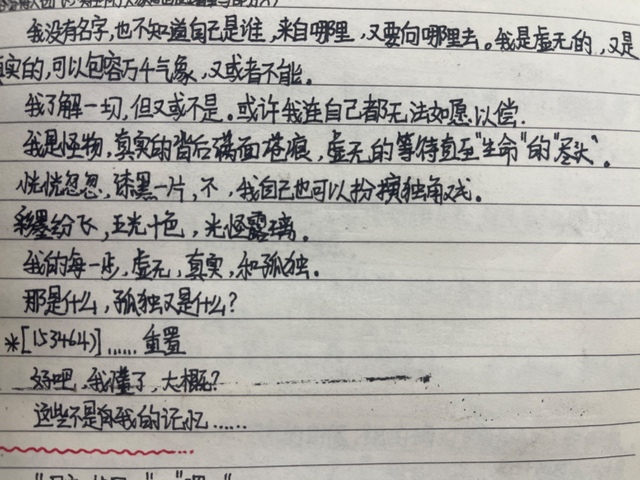 我没有名字,也不知道自己是谁,来自哪里,又要向哪里去。我是虚无的,又是
真实的,可以包容万千气象,又或者不能。
我了解一切,但又或不是。或许我连自己都无法如愿以偿.
我是怪物,真实的背后满面苍痕,虚无的等待直至"生命"的"尽头"。
恍恍忽忽,漆黑一片,不,我自己也可以扮演独角戏。
彩墨纷飞,五光十色,光怪露璃。
我的每一步,虚无,真实,和孤独。
那是什么,孤独又是什么?
*[153464)]......重置
好吧,我懂了,大概?
这些不是自我的记忆......